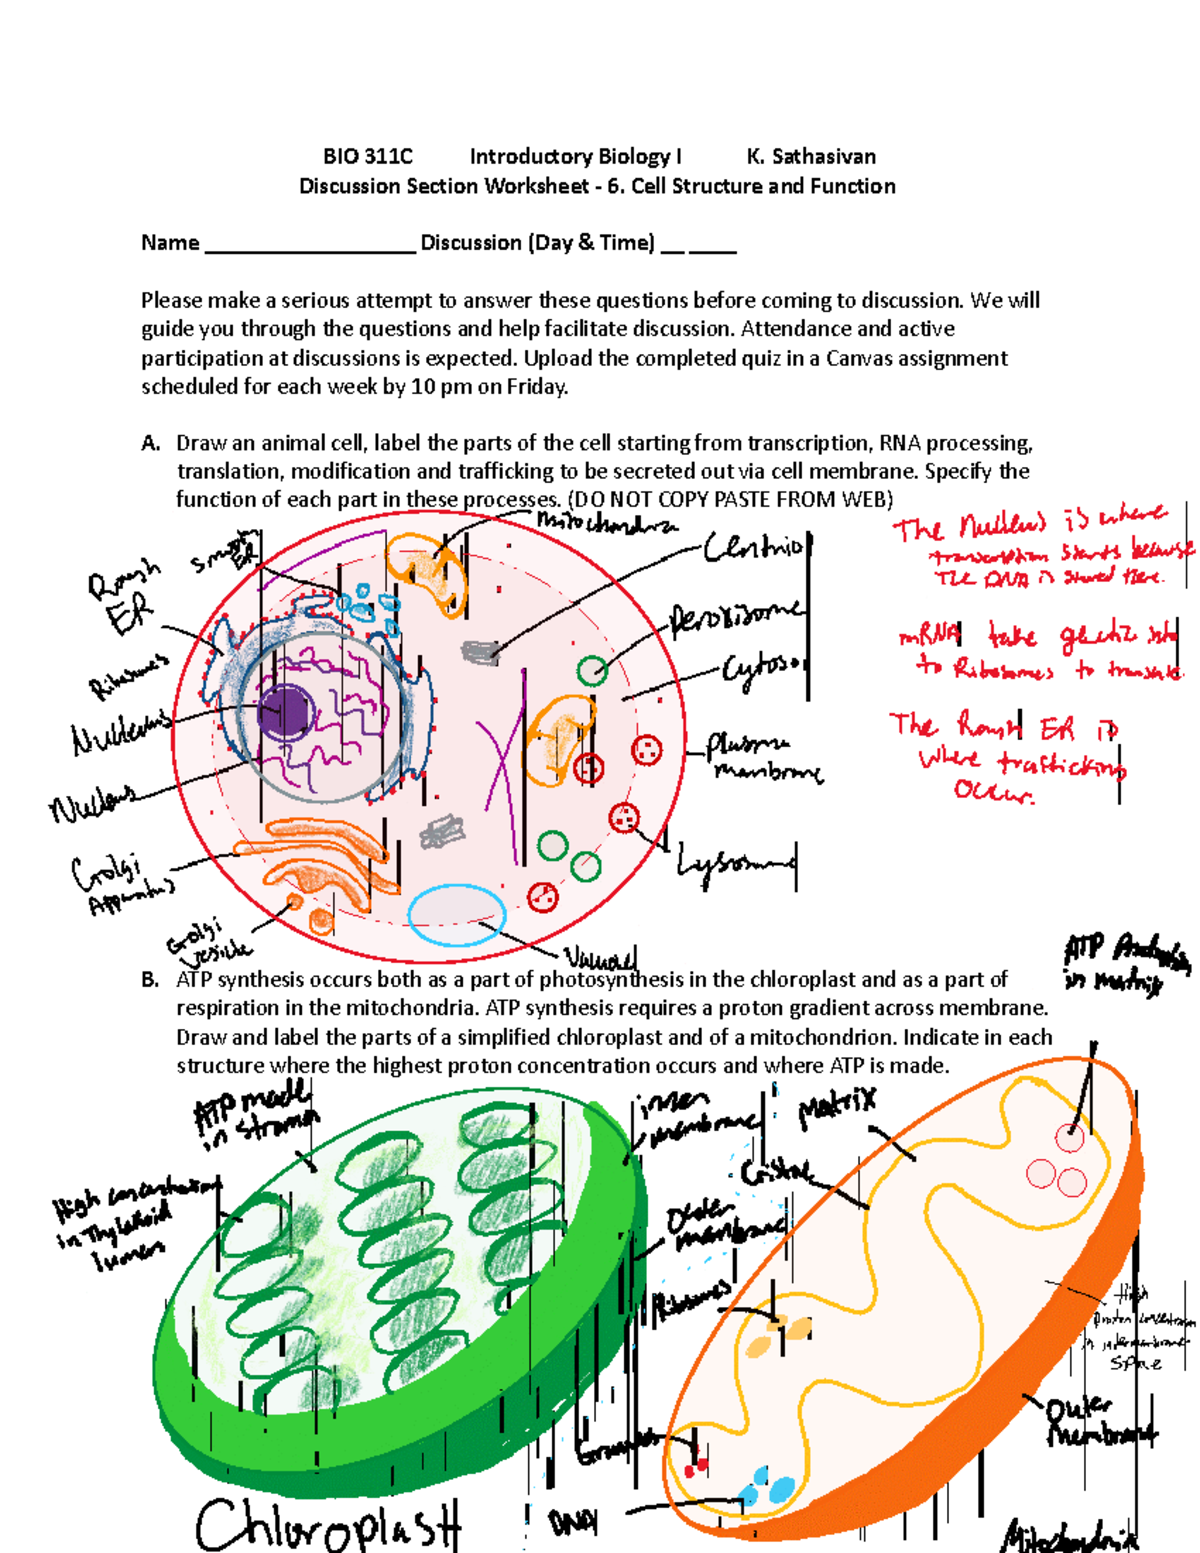 BIO 311C Introductory Biology I K. Sathasivan
Discussion Section Worksheet - 6. Cell Structure and Function
Name __________________ Discussion (Day & Time) __ ____
Please make a serious attempt to answer these questions before coming to discussion. We will
guide you through the questions and help facilitate discussion. Attendance and active
participation at discussions is expected. Upload the completed quiz in a Canvas assignment
scheduled for each week by 10 pm on Friday.
A. Draw an animal cell, label the parts of the cell starting from transcription, RNA processing,
translation, modification and trafficking to be secreted out via cell membrane. Specify the
function of each part in these processes. (DO NOT COPY PASTE FROM WEB)
Mitochondria
Smooth
ER
Rough
ER
Centriol
The Nucleus is where
transcription starts because
The DNA is stored there.
Peroxisome
mRNA take
to Ribosomes to translate
Ribosomes
Cytosol
Nucleus
The Rough ER is
where trafficking
occur.
Plasma
membrane
Nucleus
Golgi
Apparatus
Lysosome
Golgi
vesicle
ATP Production
in matrix
B. ATP synthesis occurs both as a part of photosynthesis in the chloroplast and as a part of
respiration in the mitochondria. ATP synthesis requires a proton gradient across membrane.
Draw and label the parts of a simplified chloroplast and of a mitochondrion. Indicate in each
structure where the highest proton concentration occurs and where ATP is made.
ATP made
in stroma
inner
membrane
Matrix
High concentration
in thylakoid
lumens
Cristae
Outer
membrane
Ribosomes
High
proton concentration
in intermembrane
space
Outer
Membrane
Granules
DNA
Chloroplast
Mitochondria